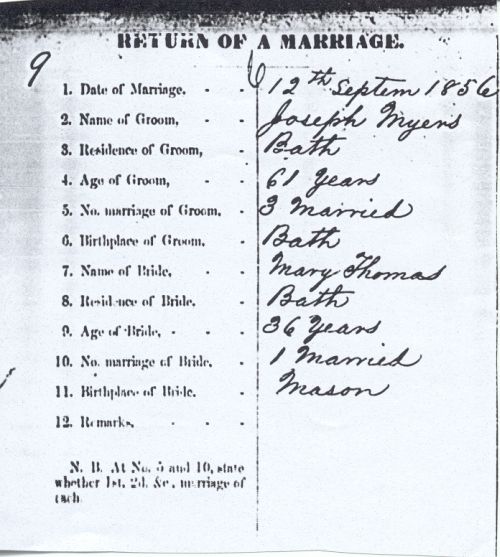 RETURN OF A MARRIAGE.
9
1. Date of Marriage. - - 12th Septem 1856
2. Name of Groom, - - Joseph Myers
3. Residence of Groom, - Bath
4. Age of Groom, - - 61 Years
5. No. marriage of Groom, - 3 Married
6. Birthplace of Groom. - Bath
7. Name of Bride. - - Mary Thomas
8. Residence of Bride. - Bath
9. Age of Bride, - - - 36 Years
10. No. marriage of Bride. - 1 Married
11. Birthplace of Bride. - Mason
12. Remarks. - - -
N. B. At No. 5 and 10, state
whether 1st, 2d. &c., marriage of
each.